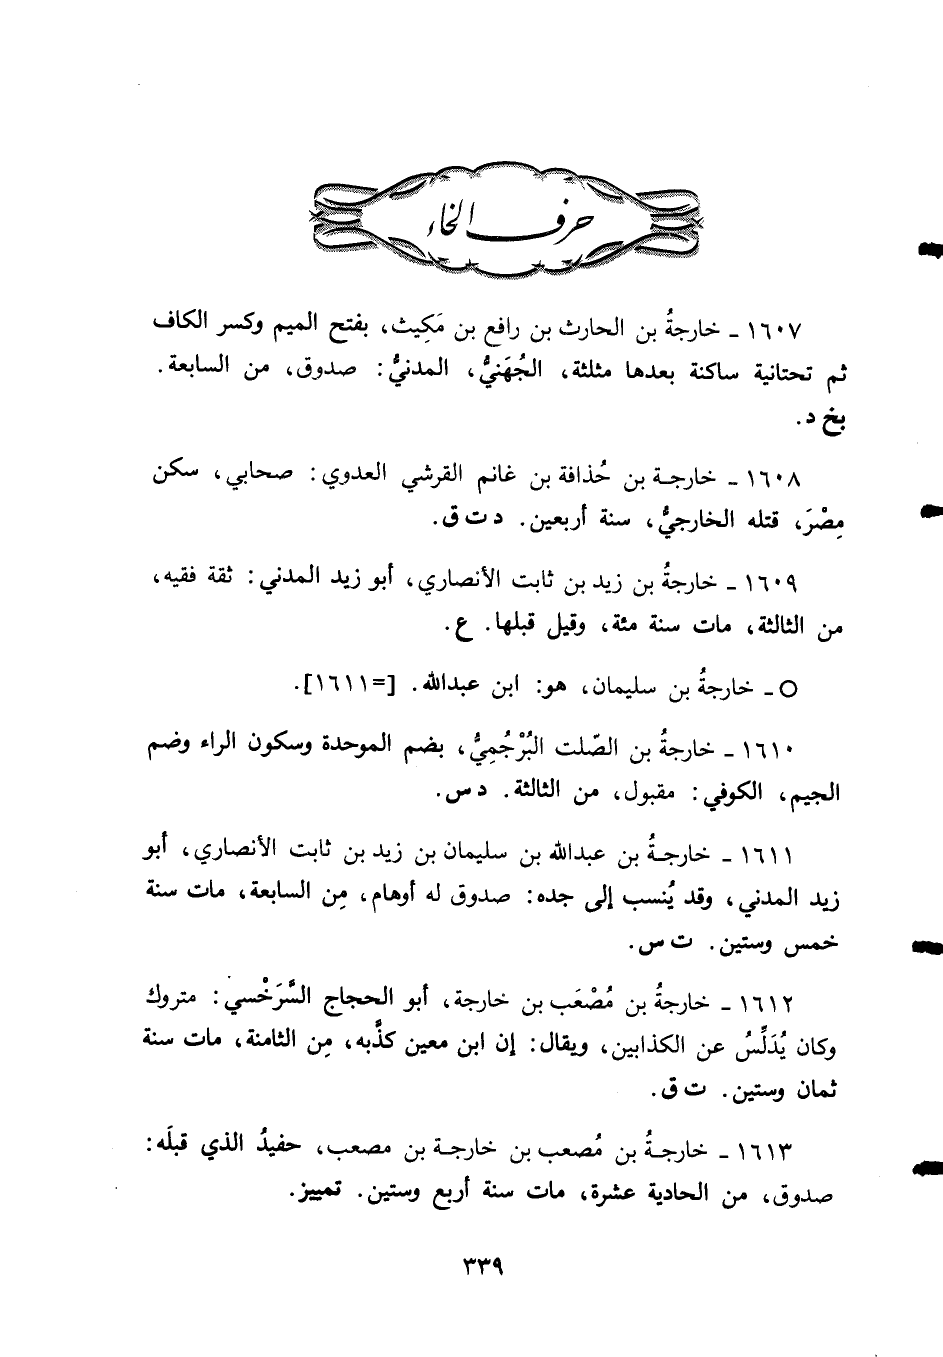 حرف الخاء
١٦٠٧ ـ خارجةُ بن الحارث بن رافع بن مَكِيث، بفتح الميم وكسر الكاف
ثم تحتانية ساكنة بعدها مثلثة، الجُهَنيُّ، المدنيُّ: صدوق، من السابعة.
بخ د.
١٦٠٨ ـ خارجة بن حُذافة بن غانم القرشي العدوي: صحابي، سكن
مِصْرَ، قتله الخارجيُّ، سنة أربعين. د ت ق.
١٦٠٩ ـ خارجةُ بن زيد بن ثابت الأنصاري، أبو زيد المدني: ثقة فقيه،
من الثالثة، مات سنة مئة، وقيل قبلها. ع.
○ ـ خارجةُ بن سليمان، هو: ابن عبدالله. [=١٦١١].
١٦١٠ ـ خارجةُ بن الصّلت البُرْجُمِيُّ، بضم الموحدة وسكون الراء وضم
الجيم، الكوفي: مقبول، من الثالثة. د س.
١٦١١ ـ خارجةُ بن عبدالله بن سليمان بن زيد بن ثابت الأنصاري، أبو
زيد المدني، وقد يُنسب إلى جده: صدوق له أوهام، مِن السابعة، مات سنة
خمس وستين. ت س.
١٦١٢ ـ خارجةُ بن مُصْعَب بن خارجة، أبو الحجاج السَّرَخْسي: متروك
وكان يُدَلِّسُ عن الكذابين، ويقال: إن ابن معين كذَّبه، مِن الثامنة، مات سنة
ثمان وستين. ت ق.
١٦١٣ ـ خارجةُ بن مُصعب بن خارجة بن مصعب، حفيدُ الذي قبلَه:
صدوق، من الحادية عشرة، مات سنة أربع وستين. تمييز.
٣٣٩